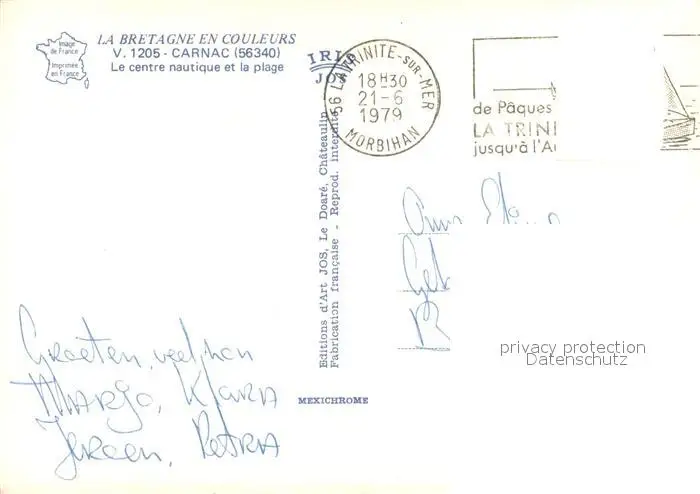 Image
de France
Imprimée
en France
LA BRETAGNE EN COULEURS
V. 1205 - CARNAC (56340)
Le centre nautique et la plage
IRIS
JOS
56 LA TRINITE-SUR-MER
18H30
21-6
1979
MORBIHAN
de Pâques
LA TRINI
jusqu'à l'A
Editions d'Art JOS, Le Doaré, Châteaulin
Fabrication française - Reprod. interdite
MEXICHROME
privacy protection
Datenschutz
Groeten, veel, van
MARGO, KLARA
Jeroen, PETRA